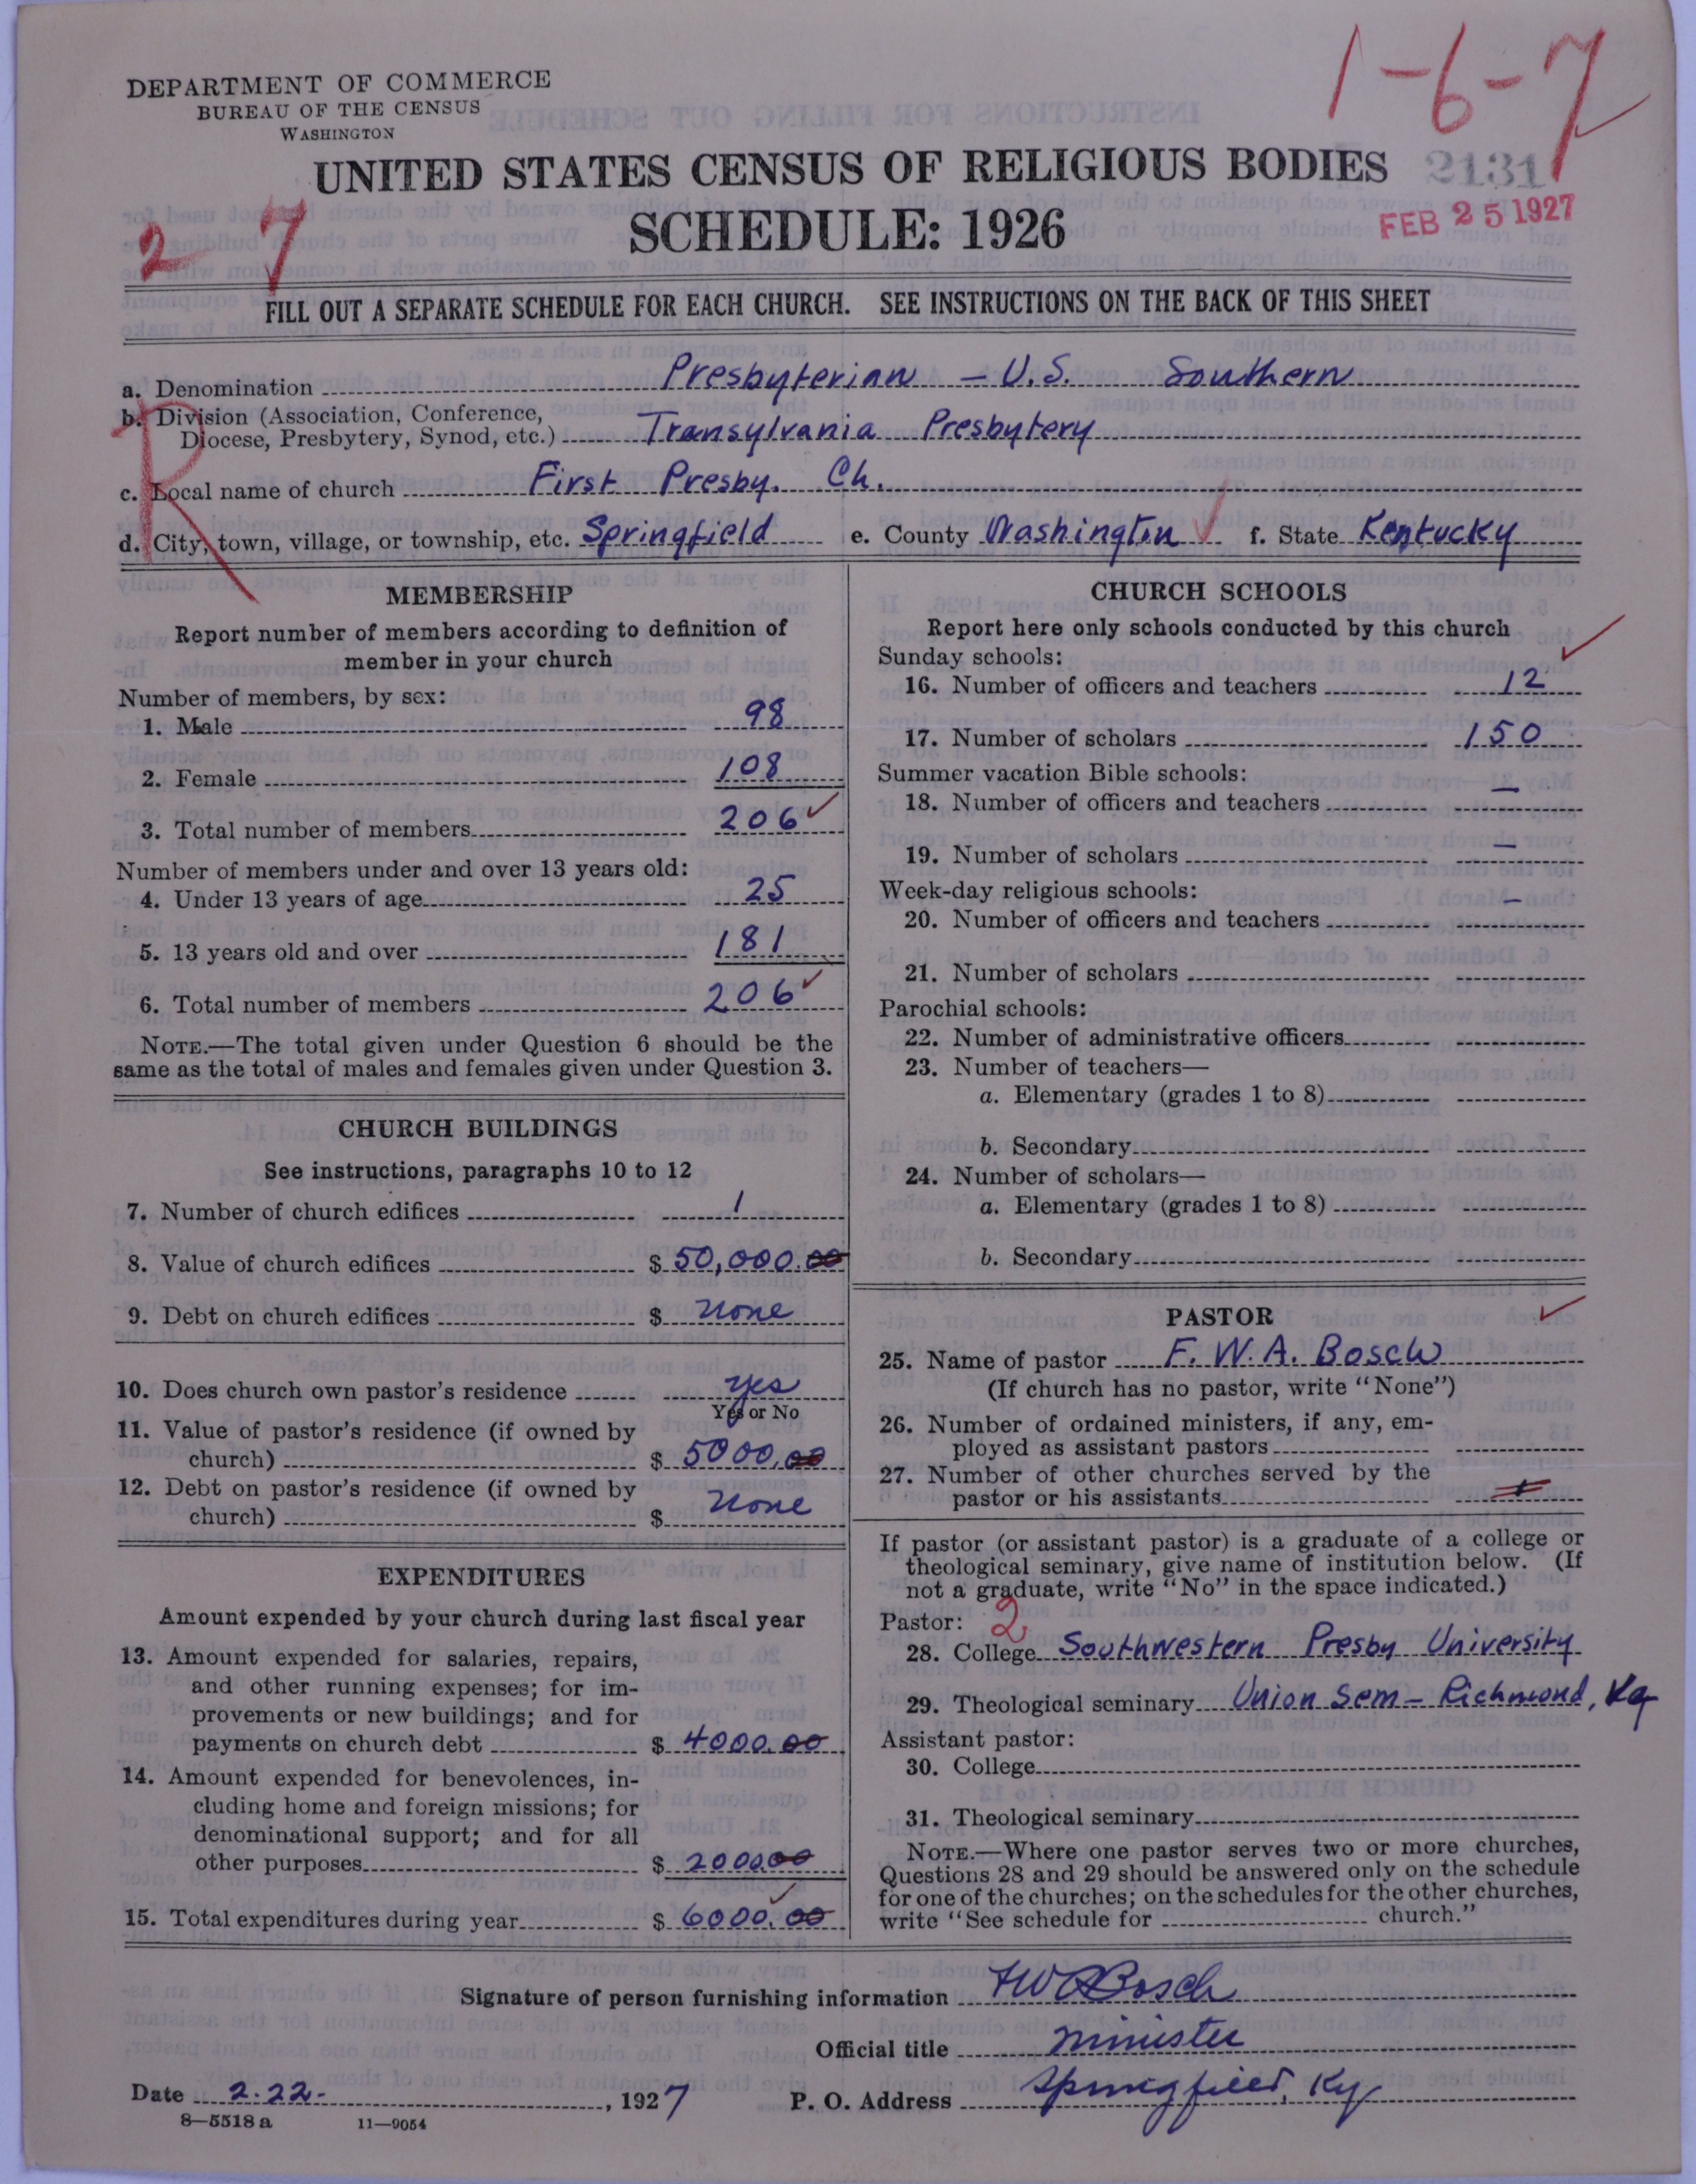 1-6-7
DEPARTMENT OF COMMERCE
BUREAU OF THE CENSUS
WASHINGTON
UNITED STATES CENSUS OF RELIGIOUS BODIES
2131
SCHEDULE: 1926
FEB 25 1927
2 7
FILL OUT A SEPARATE SCHEDULE FOR EACH CHURCH. SEE INSTRUCTIONS ON THE BACK OF THIS SHEET
a. Denomination Presbyterian - U.S. Southern
b. Division (Association, Conference,
Diocese, Presbytery, Synod, etc.) Transylvania Presbytery
R
c. Local name of church First Presby. Ch.
d. City, town, village, or township, etc. Springfield e. County Washington f. State Kentucky
MEMBERSHIP
Report number of members according to definition of
member in your church
Number of members, by sex:
1. Male 98
2. Female 108
3. Total number of members 206
Number of members under and over 13 years old:
4. Under 13 years of age 25
5. 13 years old and over 181
6. Total number of members 206
NOTE.—The total given under Question 6 should be the
same as the total of males and females given under Question 3.
CHURCH BUILDINGS
See instructions, paragraphs 10 to 12
7. Number of church edifices 1
8. Value of church edifices $ 50,000.00
9. Debt on church edifices $ none
10. Does church own pastor's residence yes
Yes or No
11. Value of pastor's residence (if owned by
church) $ 5000.00
12. Debt on pastor's residence (if owned by
church) $ none
EXPENDITURES
Amount expended by your church during last fiscal year
13. Amount expended for salaries, repairs,
and other running expenses; for im-
provements or new buildings; and for
payments on church debt $ 4000.00
14. Amount expended for benevolences, in-
cluding home and foreign missions; for
denominational support; and for all
other purposes $ 2000.00
15. Total expenditures during year $ 6000.00
CHURCH SCHOOLS
Report here only schools conducted by this church
Sunday schools:
16. Number of officers and teachers 12
17. Number of scholars 150
Summer vacation Bible schools:
18. Number of officers and teachers —
19. Number of scholars —
Week-day religious schools:
20. Number of officers and teachers —
21. Number of scholars
Parochial schools:
22. Number of administrative officers
23. Number of teachers—
a. Elementary (grades 1 to 8)
b. Secondary
24. Number of scholars—
a. Elementary (grades 1 to 8)
b. Secondary
PASTOR
25. Name of pastor F. W. A. Bosch
(If church has no pastor, write "None")
26. Number of ordained ministers, if any, em-
ployed as assistant pastors
27. Number of other churches served by the
pastor or his assistants
If pastor (or assistant pastor) is a graduate of a college or
theological seminary, give name of institution below. (If
not a graduate, write "No" in the space indicated.)
Pastor: 2
28. College Southwestern Presby University
29. Theological seminary Union Sem - Richmond, Va
Assistant pastor:
30. College
31. Theological seminary
NOTE.—Where one pastor serves two or more churches,
Questions 28 and 29 should be answered only on the schedule
for one of the churches; on the schedules for the other churches,
write "See schedule for church."
Signature of person furnishing information FWABosch
Official title minister
Date 2.22. , 1927 P. O. Address Springfield, Ky
8—5518 a 11—9054